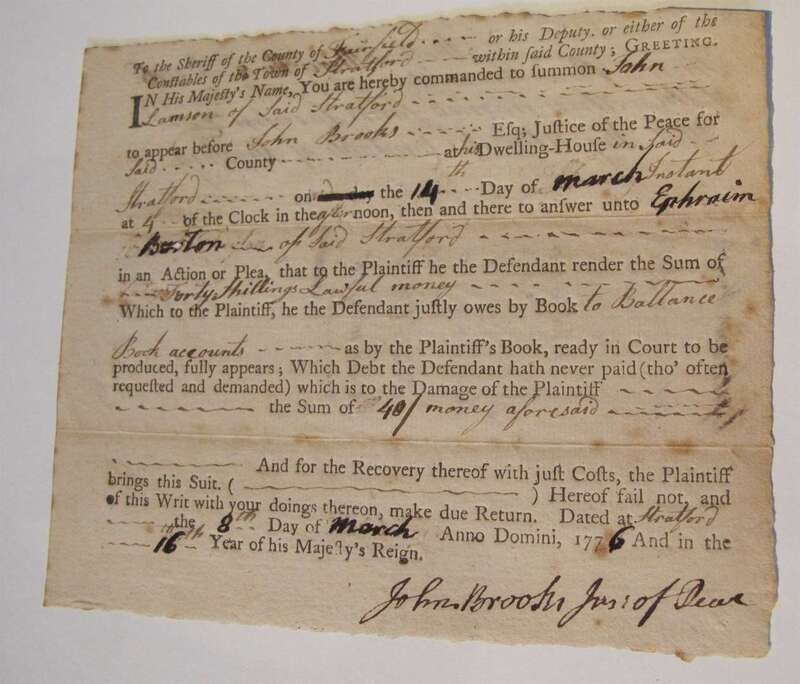 To the Sheriff of the County of Fairfield or his Deputy. or either of the
Constables of the Town of Stratford within ſaid County; GREETING.
IN His Majeſty's Name, You are hereby commanded to ſummon John
Lamson of Said Stratford
to appear before John Brooks Eſq; Juſtice of the Peace for
Said County at his Dwelling-Houſe in Said
Stratford on the 14th Day of March Instant
at 4 of the Clock in the afternoon, then and there to anſwer unto Ephraim
Burton of Said Stratford
in an Action or Plea, that to the Plaintiff he the Defendant render the Sum of
Forty Shillings Lawful money
Which to the Plaintiff, he the Defendant juſtly owes by Book to Ballance
Book accounts as by the Plaintiff's Book, ready in Court to be
produced, fully appears; Which Debt the Defendant hath never paid (tho' often
requeſted and demanded) which is to the Damage of the Plaintiff
the Sum of 40/ money aforesaid
And for the Recovery thereof with juſt Coſts, the Plaintiff
brings this Suit. ( ) Hereof fail not, and
of this Writ with your doings thereon, make due Return. Dated at Stratford
the 8th Day of March Anno Domini, 1776 And in the
16th Year of his Majeſty's Reign.
John Brooks Jus: of Peace